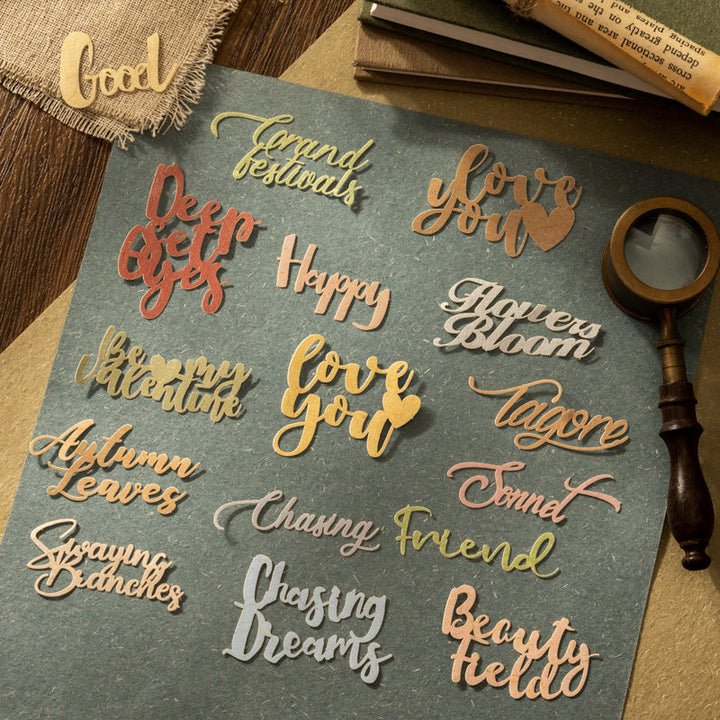 Good
cross sectional area and the
depend greatly on the
spacing plates
Grand
festivals
love
you
Deep
Get
Yes
Happy
Flowers
Bloom
Be my
Valentine
love
You
Tagore
Autumn
Leaves
Sonnet
Chasing
Friend
Swaying
Branches
Chasing
Dreams
Beauty
field